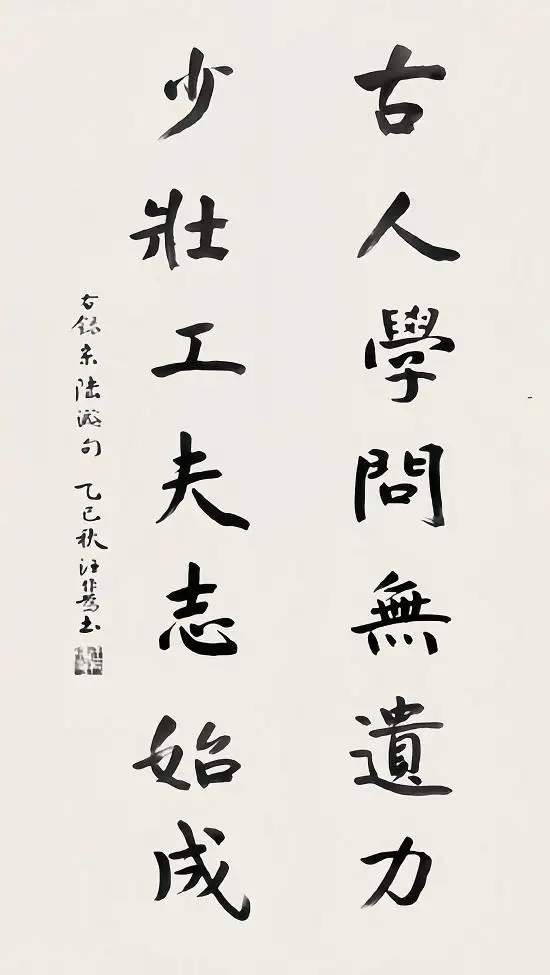 古人學問無遺力
少壯工夫志始成
右錄宋陸游句 乙巳秋汪書